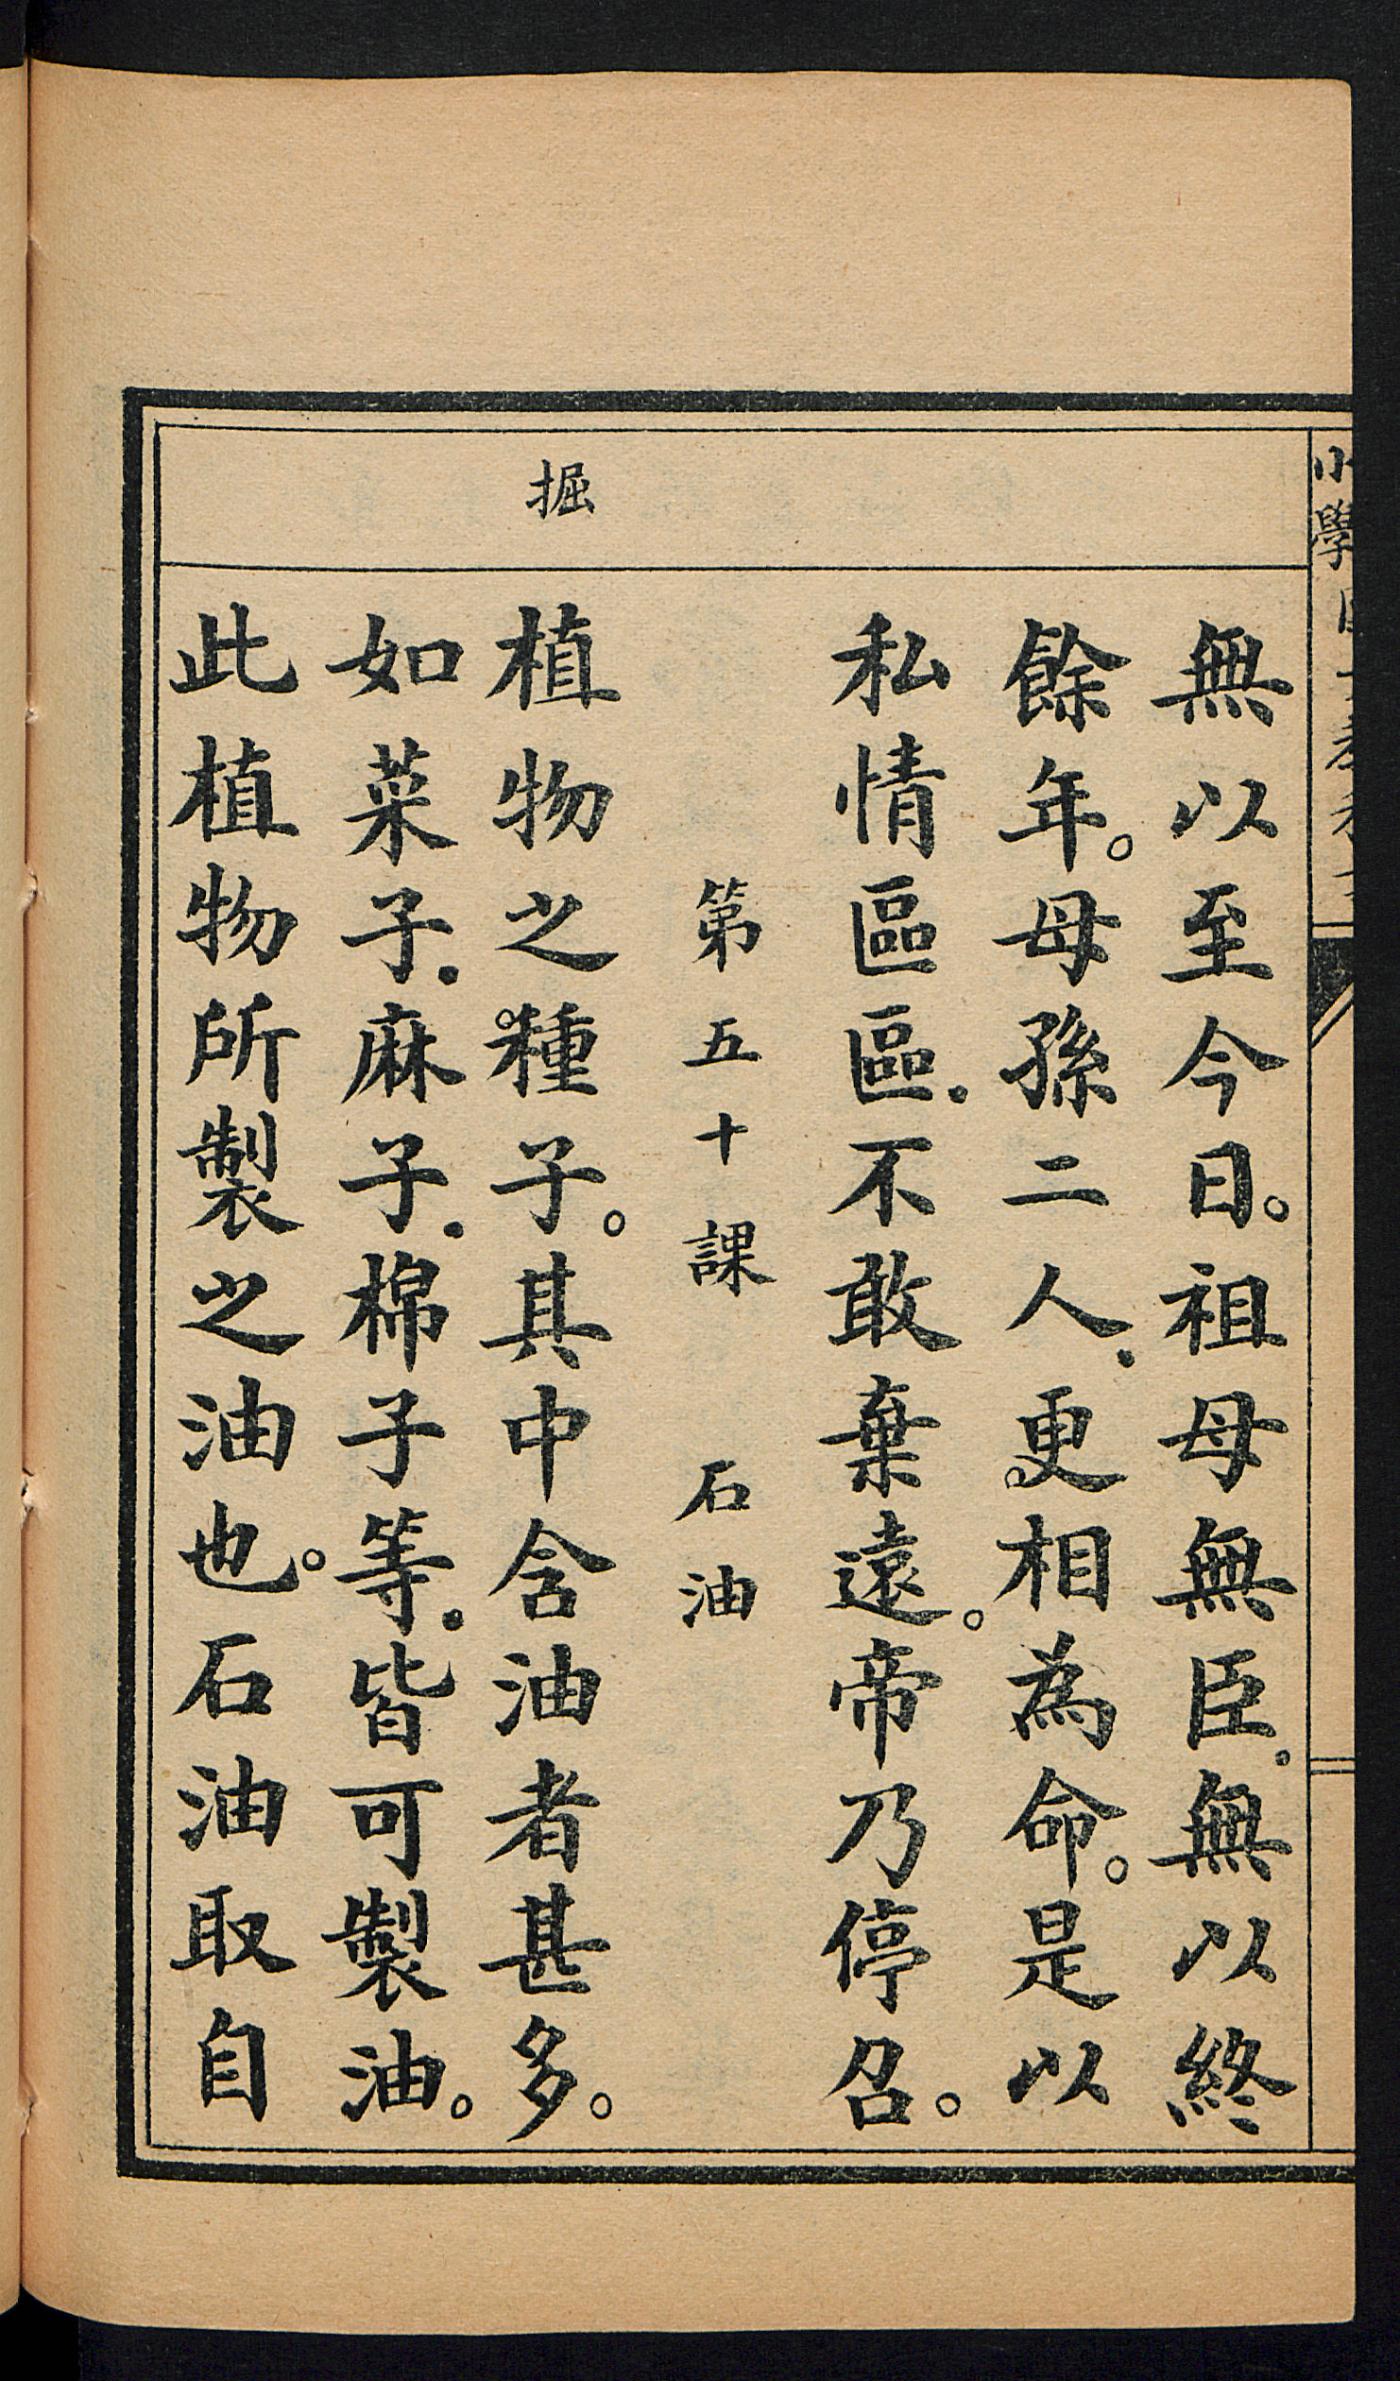 小學
無以至今日。祖母無臣.無以終
餘年。母孫二人.更相為命。是以
私情區區.不敢棄遠。帝乃停召。
第五十課　石油
掘
植物之種子。其中含油者甚多。
如菜子.麻子.棉子等.皆可製油。
此植物所製之油也。石油取自